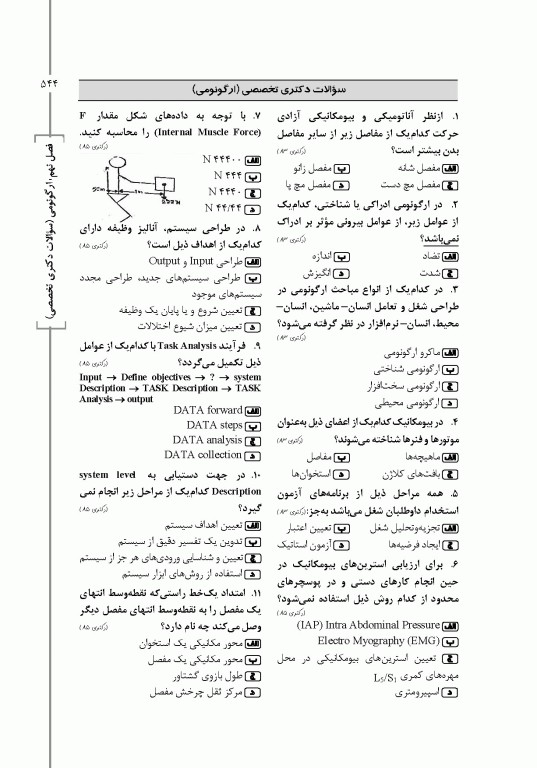 ۵۴۴
سؤالات دکتری تخصصی (ارگونومی)
فصل نهم: ارگونومی (سؤالات دکتری تخصصی)
۱. ازنظر آناتومیکی و بیومکانیکی آزادی
حرکت کدام‌یک از مفاصل زیر از سایر مفاصل
بدن بیشتر است؟ (دکتری ۸۳)
الف مفصل شانه ب مفصل زانو
ج مفصل مچ دست د مفصل مچ پا
۲. در ارگونومی ادراکی یا شناختی، کدام‌یک
از عوامل زیر، از عوامل بیرونی مؤثر بر ادراک
نمی‌باشد؟ (دکتری ۸۳)
الف تضاد ب اندازه
ج شدت د انگیزش
۳. در کدام‌یک از انواع مباحث ارگونومی در
طراحی شغل و تعامل انسان– ماشین، انسان–
محیط، انسان– نرم‌افزار در نظر گرفته می‌شود؟
(دکتری ۸۳)
الف ماکرو ارگونومی
ب ارگونومی شناختی
ج ارگونومی سخت‌افزار
د ارگونومی محیطی
۴. در بیومکانیک کدام‌یک از اعضای ذیل به‌عنوان
موتورها و فنرها شناخته می‌شوند؟ (دکتری ۸۳)
الف ماهیچه‌ها ب مفاصل
ج بافت‌های کلاژن د استخوان‌ها
۵. همه مراحل ذیل از برنامه‌های آزمون
استخدام داوطلبان شغل می‌باشد به‌جز: (دکتری ۸۳)
الف تجزیه‌وتحلیل شغل ب تعیین اعتبار
ج ایجاد فرضیه‌ها د آزمون استاتیک
۶. برای ارزیابی استرین‌های بیومکانیک در
حین انجام کارهای دستی و در پوسچرهای
محدود از کدام روش ذیل استفاده نمی‌شود؟
(دکتری ۸۵)
الف Intra Abdominal Pressure (IAP)
ب Electro Myography (EMG)
ج تعیین استرین‌های بیومکانیکی در محل
مهره‌های کمری L5/S1
د اسپیرومتری
۷. با توجه به داده‌های شکل مقدار F
(Internal Muscle Force) را محاسبه کنید.
(دکتری ۸۵)
الف ۴۴۴۰۰ N
ب ۴۴۴ N
ج ۴۴۴۰ N
د ۴۴/۴۴ N
۸. در طراحی سیستم، آنالیز وظیفه دارای
کدام‌یک از اهداف ذیل است؟ (دکتری ۸۵)
الف طراحی Input و Output
ب طراحی سیستم‌های جدید، طراحی مجدد
سیستم‌های موجود
ج تعیین شروع و یا پایان یک وظیفه
د تعیین میزان شیوع اختلالات
۹. فرآیند Task Analysis با کدام‌یک از عوامل
ذیل تکمیل می‌گردد؟ (دکتری ۸۵)
Input → Define objectives → ? → system
Description → TASK Description → TASK
Analysis → output
الف DATA forward
ب DATA steps
ج DATA analysis
د DATA collection
۱۰. در جهت دستیابی به system level
Description کدام‌یک از مراحل زیر انجام نمی
گیرد؟ (دکتری ۸۵)
الف تعیین اهداف سیستم
ب تدوین یک تفسیر دقیق از سیستم
ج تعیین و شناسایی ورودی‌های هر جز از سیستم
د استفاده از روش‌های ابزار سیستم
۱۱. امتداد یک‌خط راستی‌که نقطه‌وسط انتهای
یک مفصل را به نقطه‌وسط انتهای مفصل دیگر
وصل می‌کند چه نام دارد؟ (دکتری ۸۵)
الف محور مکانیکی یک استخوان
ب محور مکانیکی یک مفصل
ج طول بازوی گشتاور
د مرکز ثقل چرخش مفصل